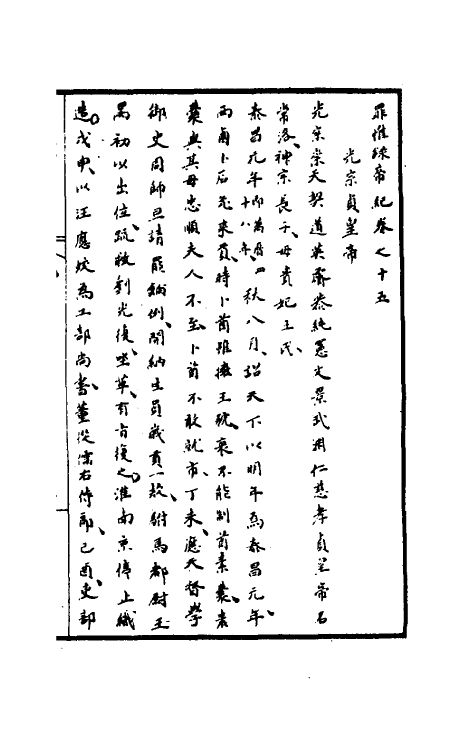 罪惟錄帝紀卷之十五
光宗貞皇帝
光宗崇天契道英睿恭純憲文景武淵仁懿孝貞皇帝名
常洛神宗長子母貴妃王氏
泰昌元年即萬曆四十八年秋八月詔天下以明年為泰昌元年
西鹵卜石兔來貢時卜酋雖擁王號衰不能制酋素囊素
囊與其母忠順夫人不至卜酋不敢就市丁未應天督學
御史周師旦請罷納例開納生員歲貢一款駙馬都尉王
昺初以出位疏救劉光復坐革有旨復之淮南京停上織
造戊申以汪應蛟為工部尚書董從儒右侍郎己酉吏部